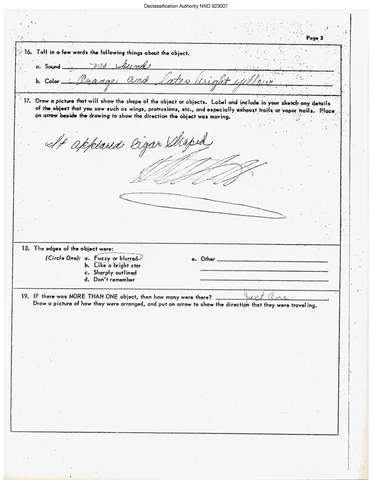 Declassification Authority NND 923007
Page 3
16. Tell in a few words the following things about the object.
a. Sound no sound
b. Color Orange and Later bright yellow
17. Draw a picture that will show the shape of the object or objects. Label and include in your sketch any details
of the object that you saw such as wings, protrusions, etc., and especially exhaust trails or vapor trails. Place
an arrow beside the drawing to show the direction the object was moving.
It appeared Cigar Shaped
18. The edges of the object were:
(Circle One): a. Fuzzy or blurred
b. Like a bright star
c. Sharply outlined
d. Don't remember
e. Other
19. IF there was MORE THAN ONE object, then how many were there? Just One
Draw a picture of how they were arranged, and put an arrow to show the direction that they were traveling.